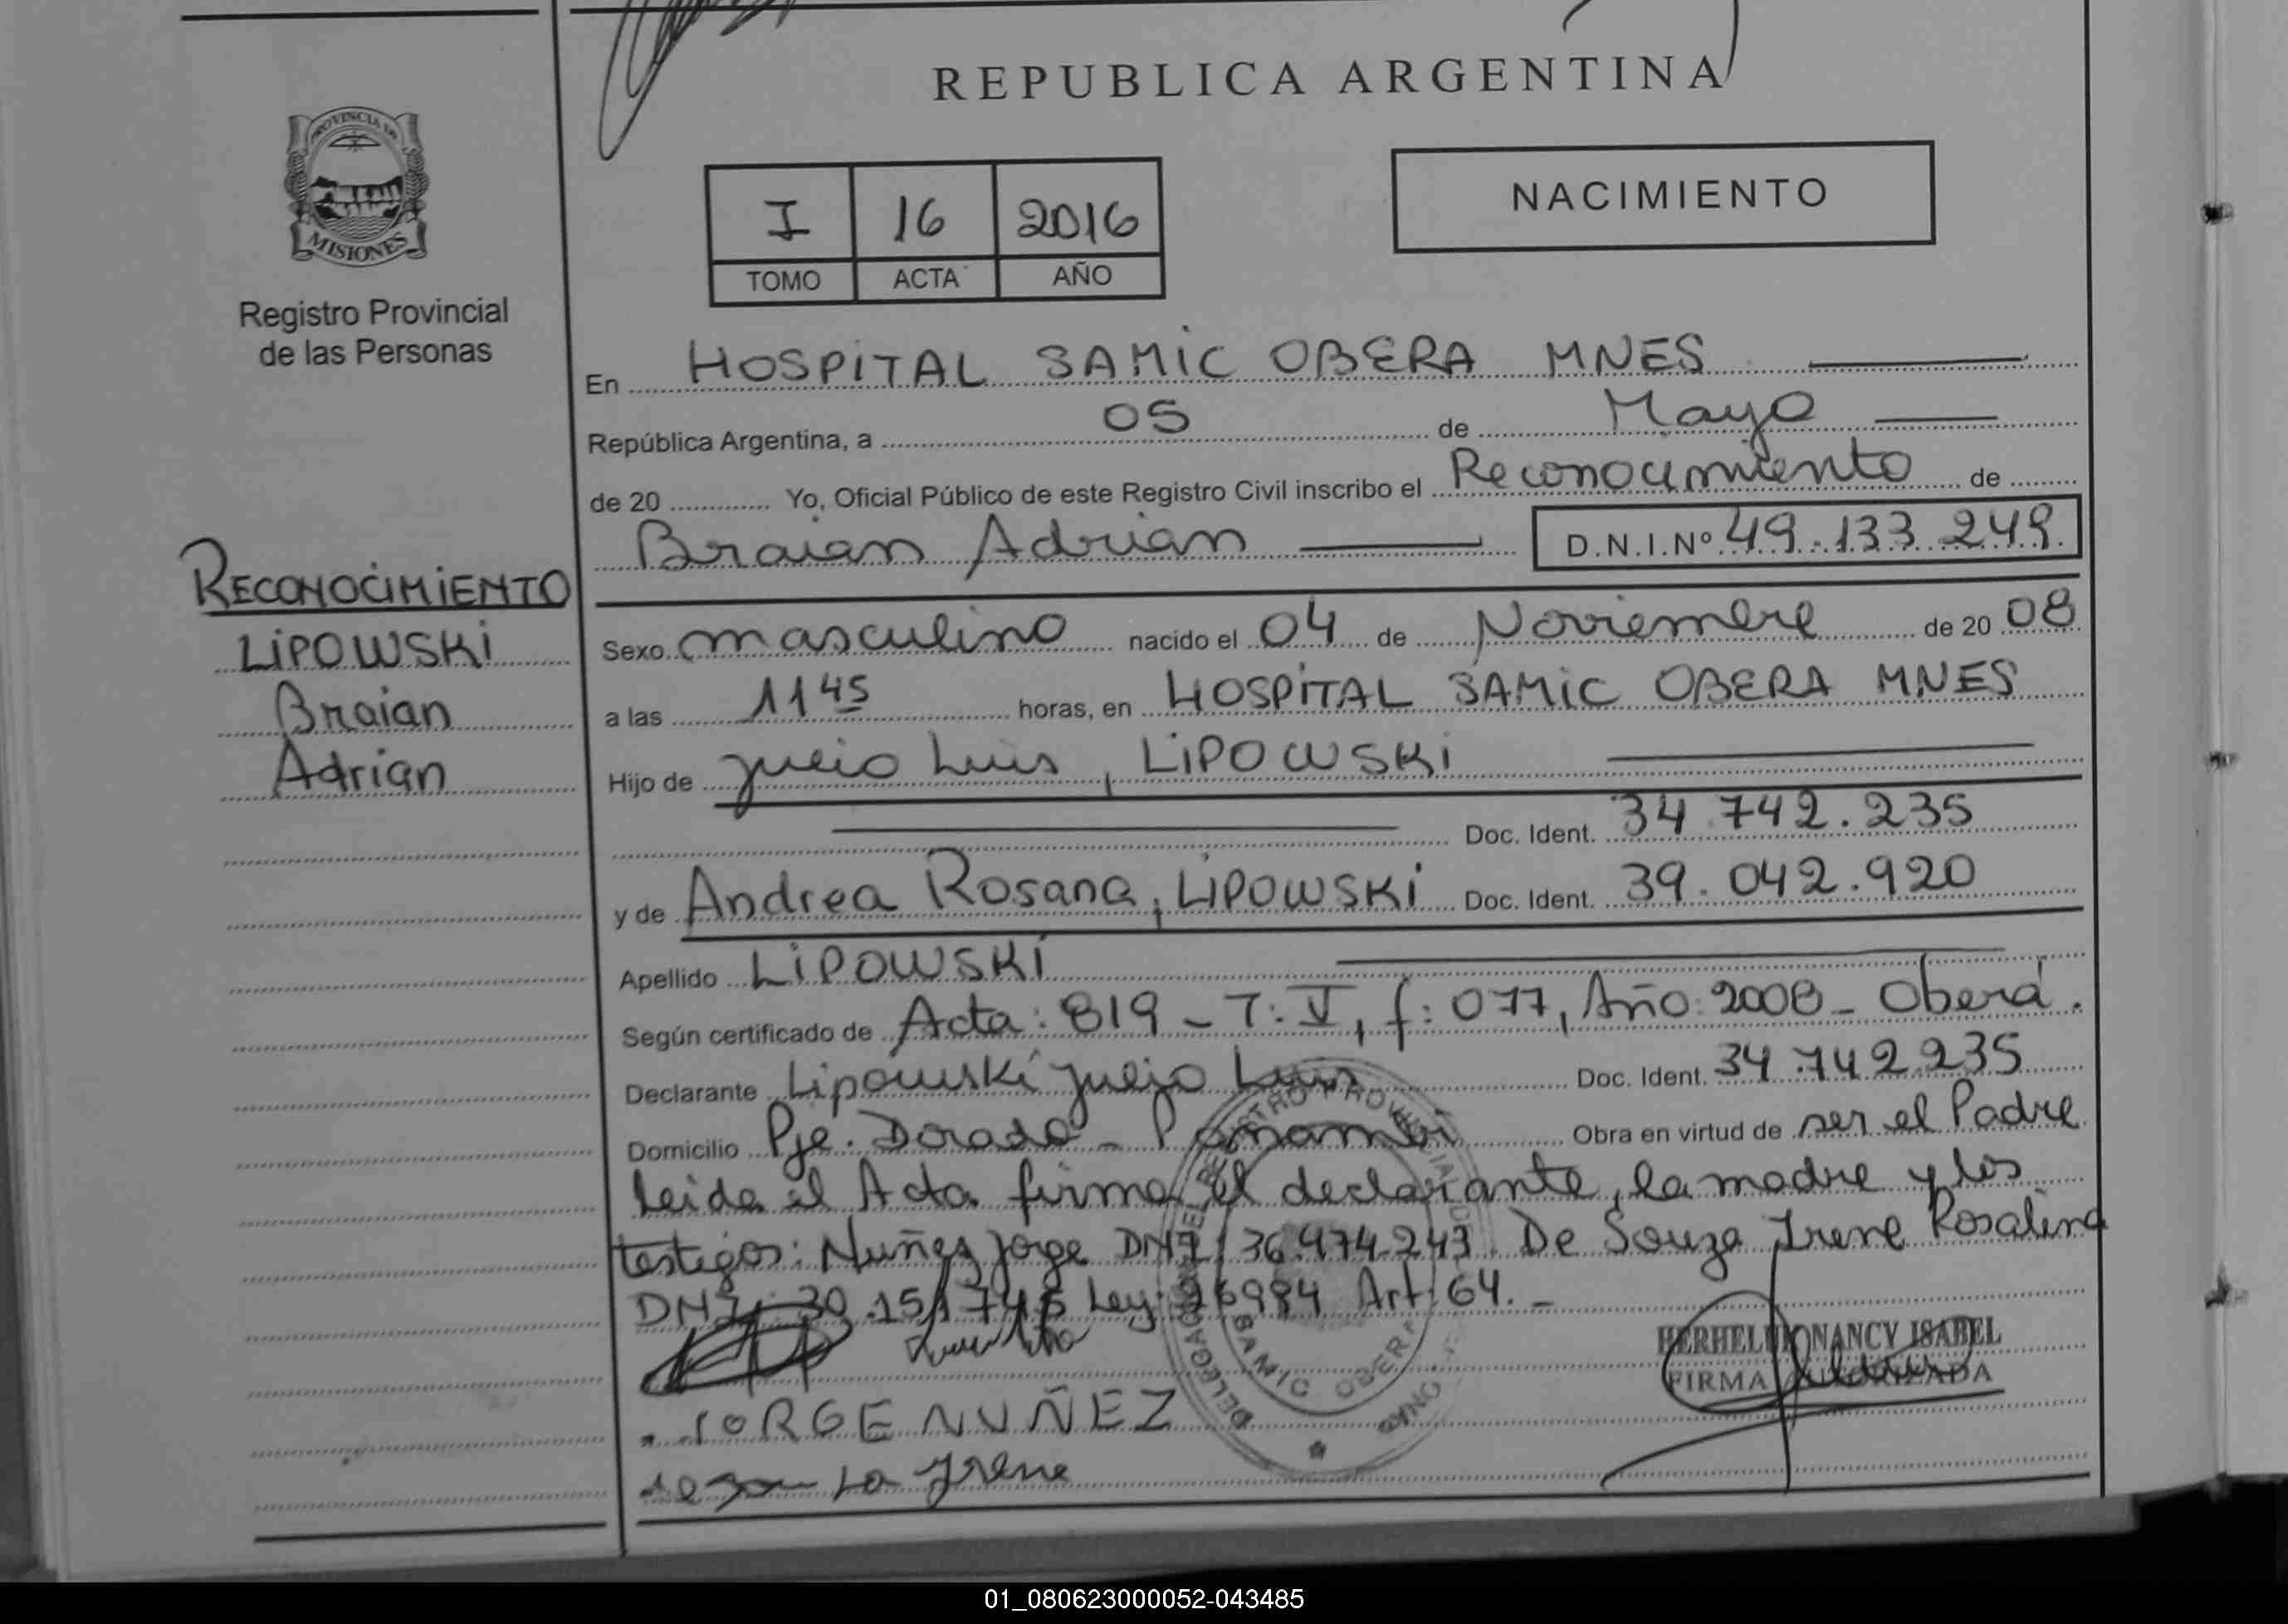 REPUBLICA ARGENTINA
PROVINCIA DE
MISIONES
Registro Provincial
de las Personas
I 16 2016
TOMO ACTA AÑO
NACIMIENTO
En HOSPITAL SAMIC OBERA MNES
República Argentina, a 05 de Mayo
de 20 Yo, Oficial Público de este Registro Civil inscribo el Reconocimiento de
Braian Adrian D.N.I.Nº 49.133.249
RECONOCIMIENTO
LIPOWSKI
Braian
Adrian
Sexo masculino nacido el 04 de Noviembre de 20 08
a las 11 45 horas, en HOSPITAL SAMIC OBERA MNES
Hijo de Julio Luis, LIPOWSKI
Doc. Ident. 34 742.235
y de Andrea Rosana, LIPOWSKI Doc. Ident. 39.042.920
Apellido LIPOWSKI
Según certificado de Acta: 819 - T: V, f: 077, Año: 2008 - Oberá.
Declarante Lipowski Julio Luis Doc. Ident. 34.742.235
Domicilio Pje. Dorado - Panambi Obra en virtud de ser el Padre
Leida el Acta firma el declarante, la madre y los
testigos: Nuñez Jorge DNI: 36.974.243 De Souza Irene Rosalina
DNI: 30.151.745 Ley: 26994 Art: 64. -
HERHEL NANCY ISABEL
FIRMA AUTORIZADA
JORGE NUÑEZ
Irene
SAMIC OBERA
01_080623000052-043485